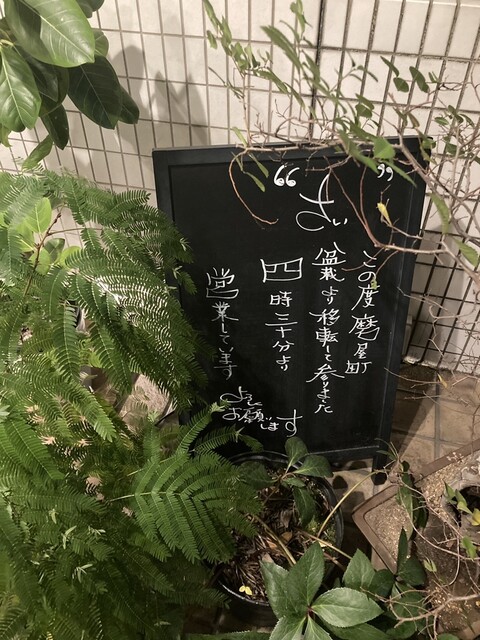 この度磨屋町
盆栽より移転して参りました
四時三十分より
営業しています
よろしく
お願いします